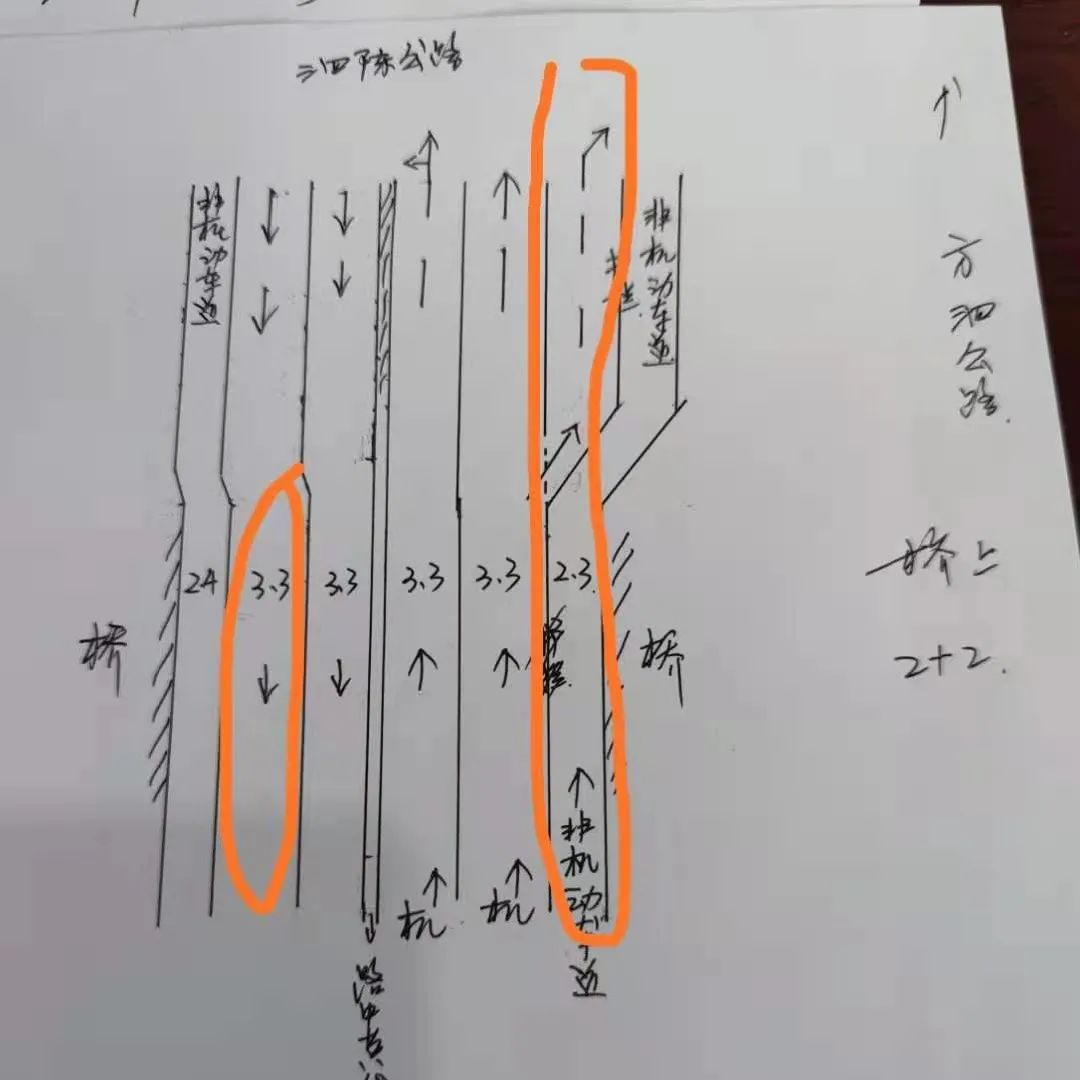 泗陈公路
非机动车道
非机动车道
方泗公路
2.4
3.3
3.3
3.3
3.3
2.3
桥
桥
桥上
2+2
机
机
非机动车道